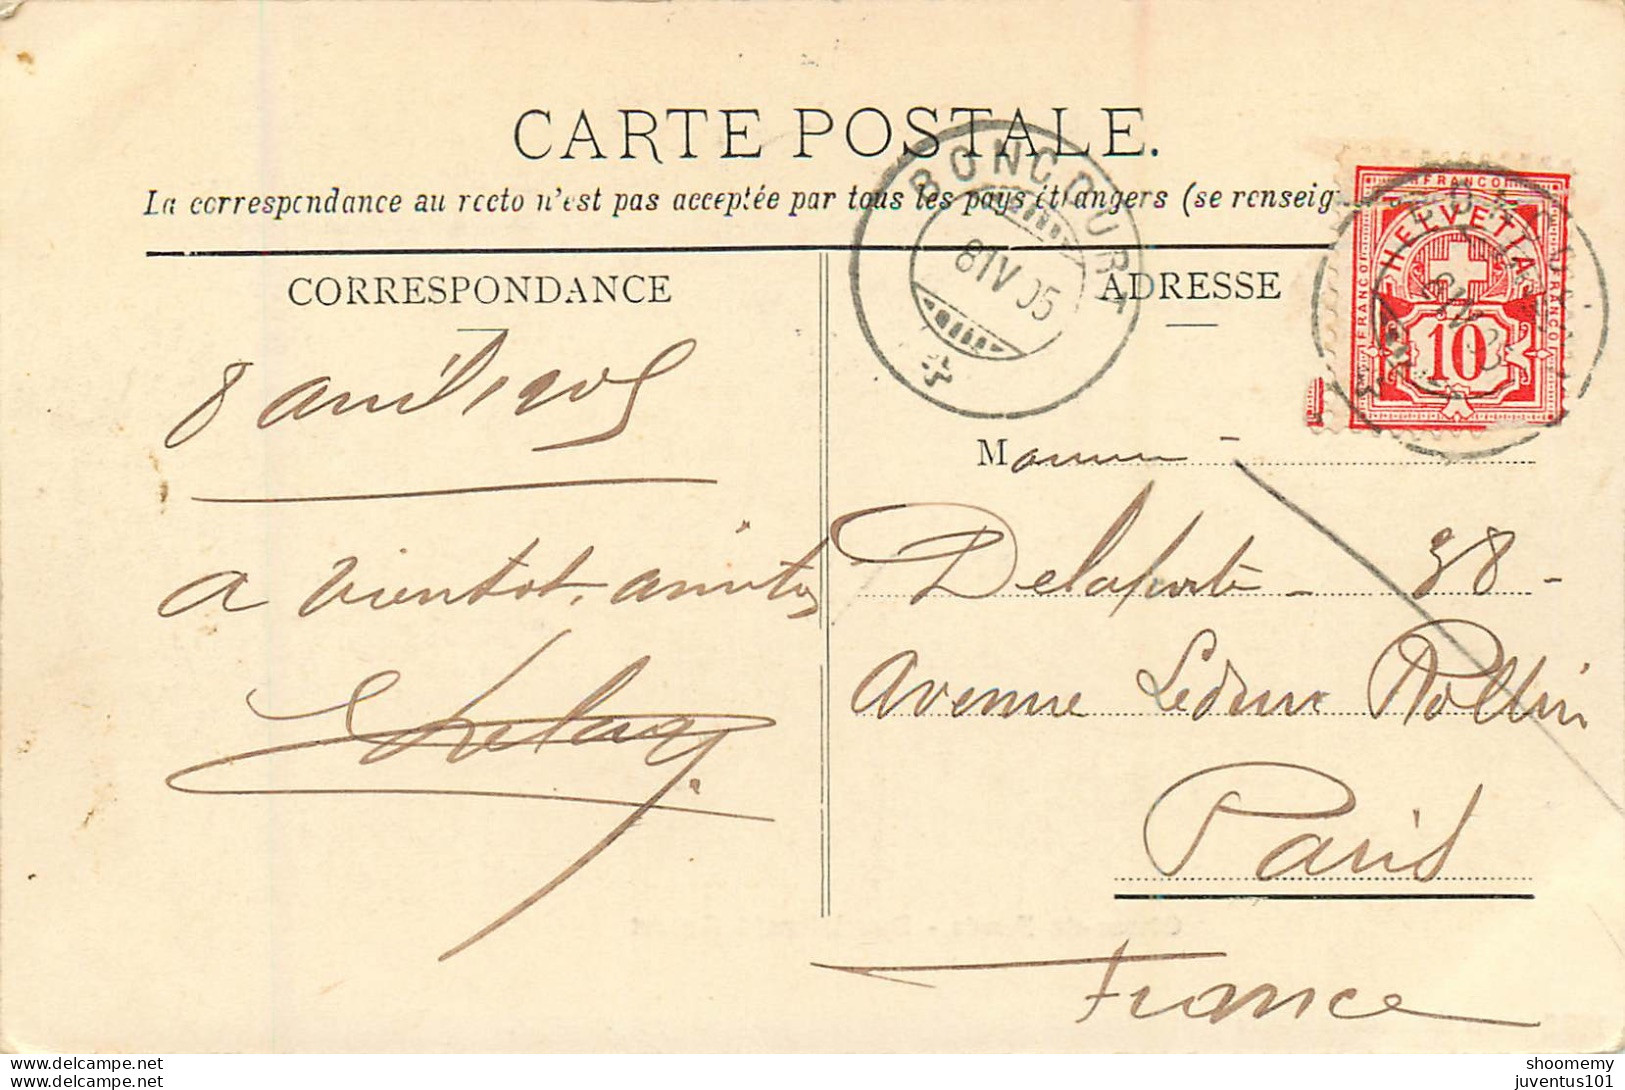 CARTE POSTALE.
La correspondance au recto n'est pas acceptée par tous les pays étrangers (se renseig
BONCOURT
8 IV 05
FRANCO
HELVETIA
FRANCO
FRANCO
10
CORRESPONDANCE
8 avril 1905
a bientot. amitiés
ADRESSE
M
Delaporte - 38 -
Avenue Ledru Rollin
Paris
France
shoomemy
juventus101